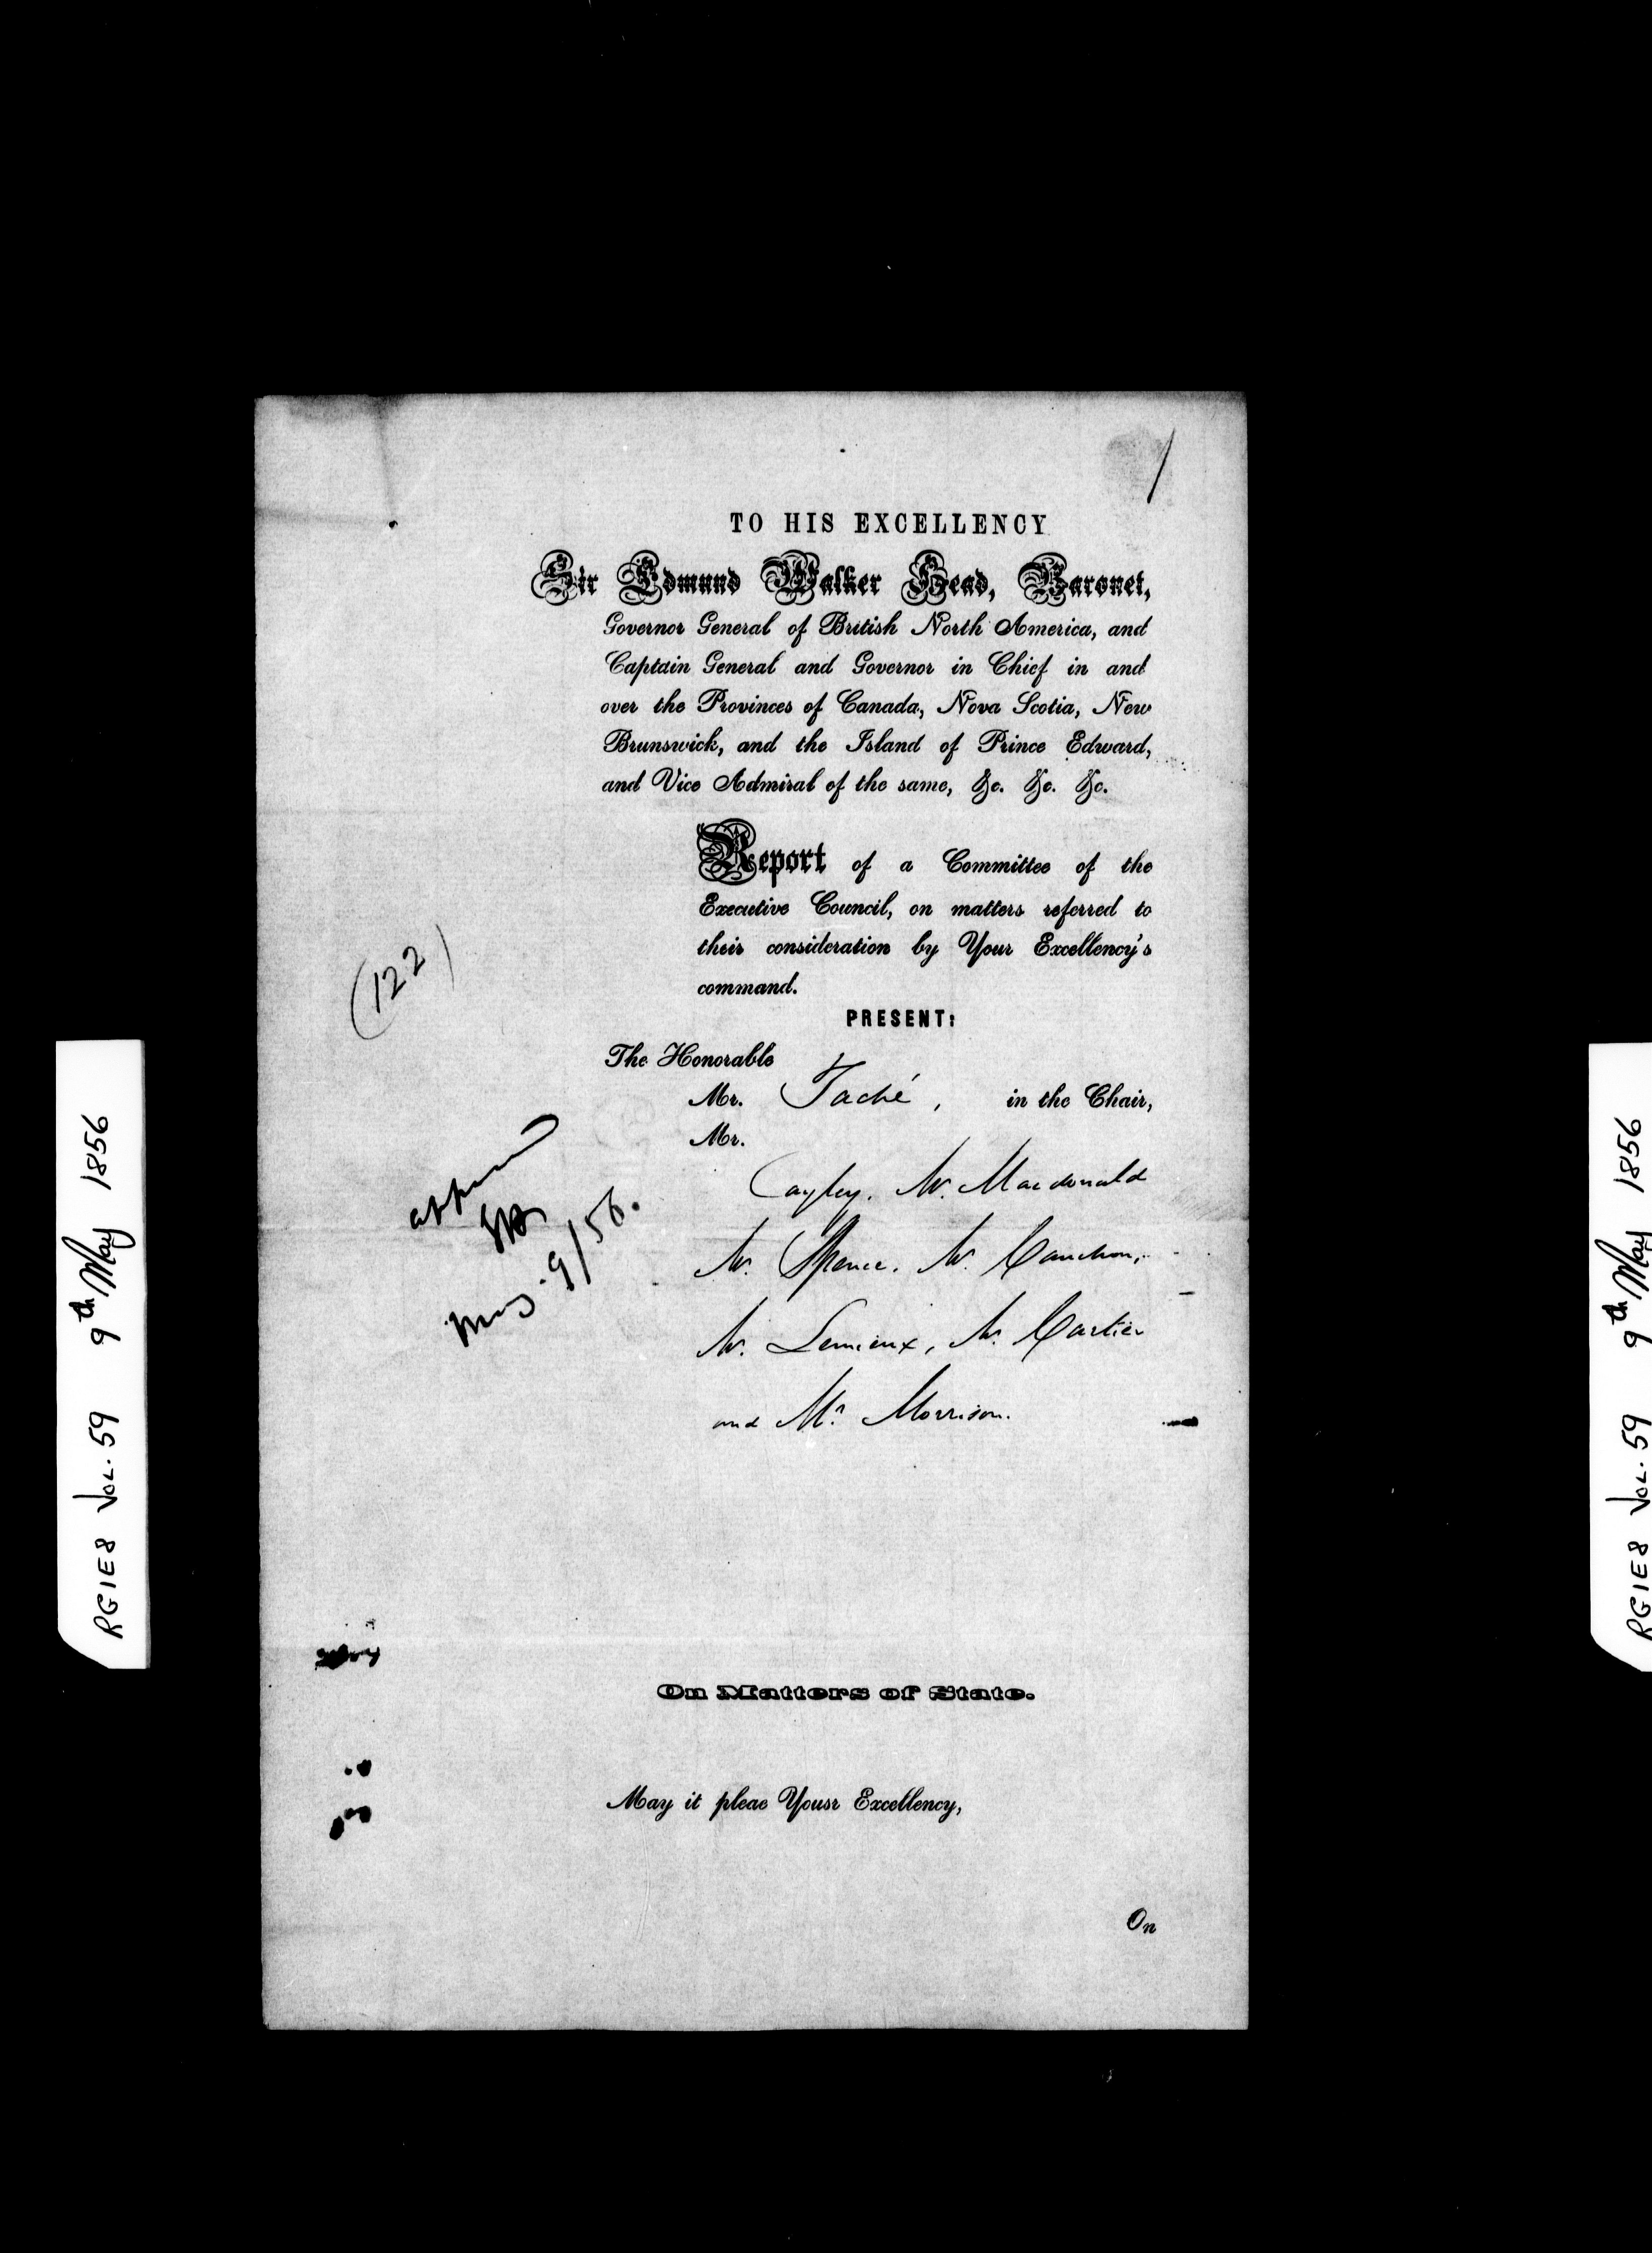 /
TO HIS EXCELLENCY
Sir Edmund Walker Head, Baronet,
Governor General of British North America, and
Captain General and Governor in Chief in and
over the Provinces of Canada, Nova Scotia, New
Brunswick, and the Island of Prince Edward,
and Vice Admiral of the same, &c. &c. &c.
Report of a Committee of the
Executive Council, on matters referred to
their consideration by Your Excellency's
command.
(122)
PRESENT:
The Honorable
Mr. Taché, in the Chair,
Mr.
Cayley. Mr. Macdonald
Mr. Spence. Mr. Cauchon,
Mr. Lemieux, Mr. Cartier
and Mr. Morrison.
May 9/56.
On Matters of State.
May it pleae Yousr Excellency,
On
RG1E8 VOL. 59 9th May 1856
RG1E8 VOL. 59 9th May 1856